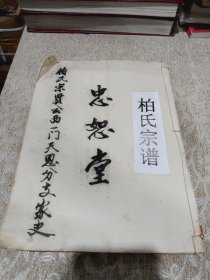 柏氏宗谱
忠恕堂
柏氏宗贤公西一门天恩分支家史